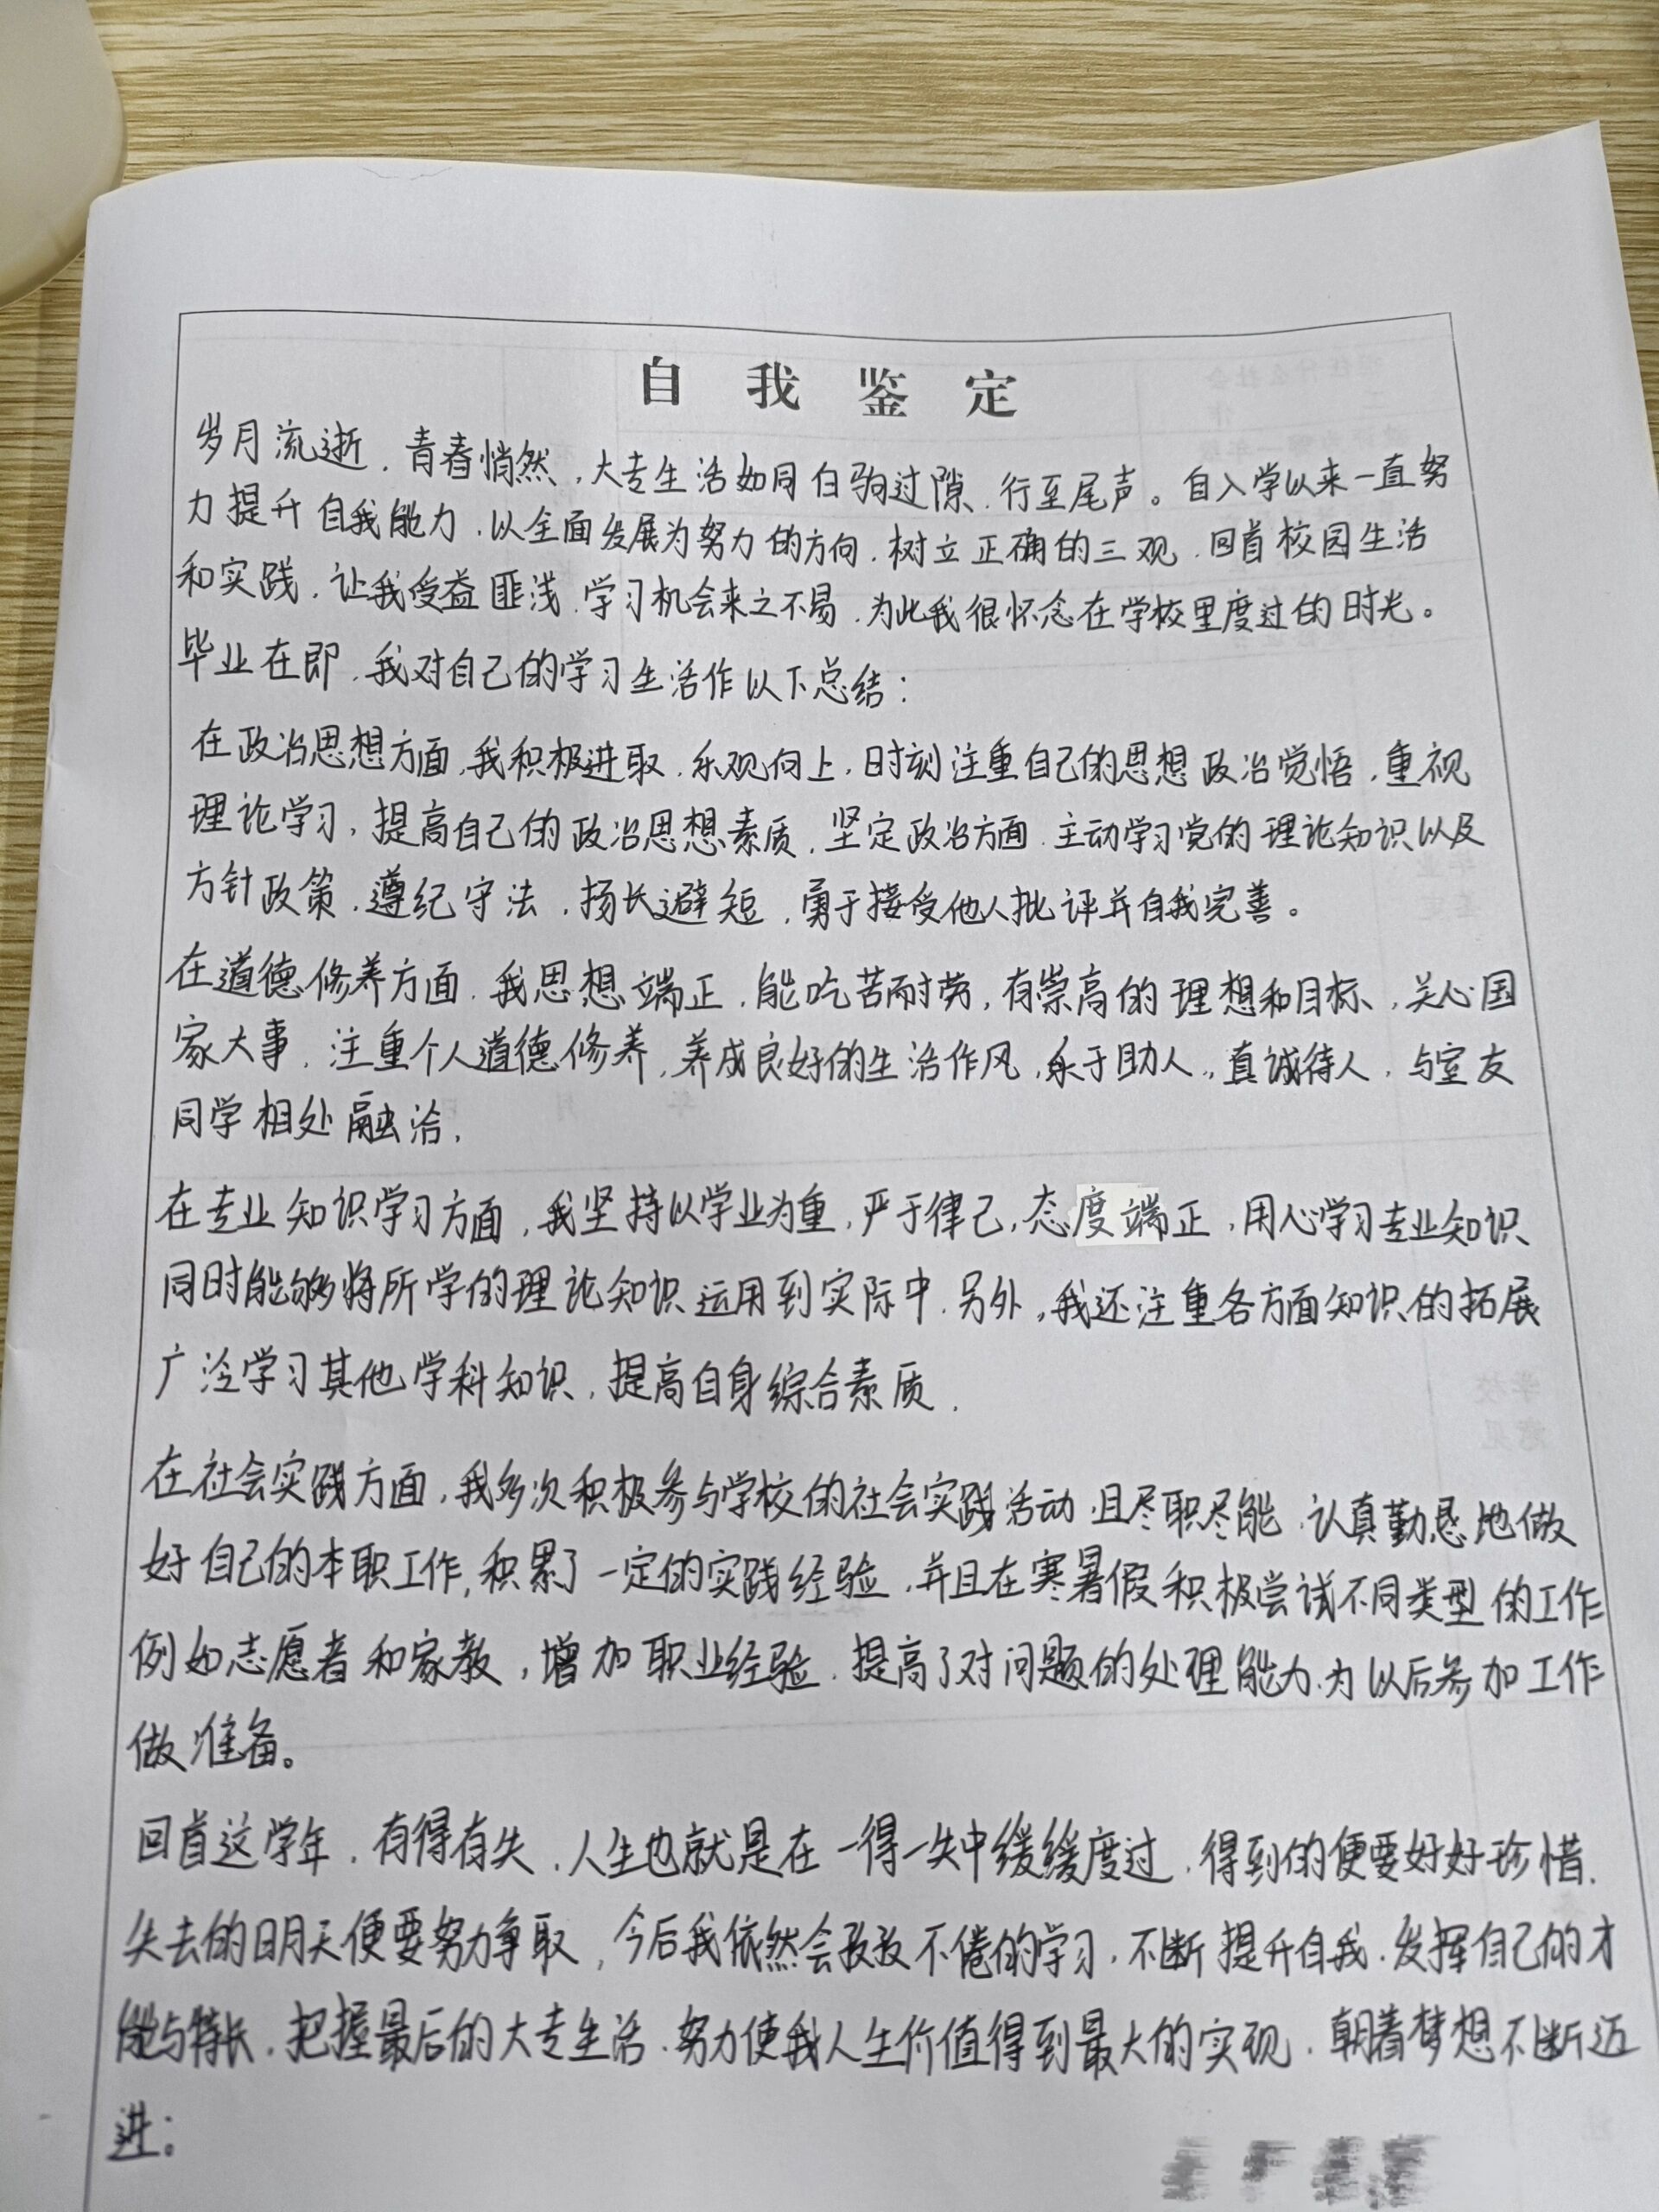 自我鉴定
岁月流逝,青春悄然,大专生活如同白驹过隙,行至尾声。自入学以来一直努
力提升自我能力,以全面发展为努力的方向,树立正确的三观,回首校园生活
和实践,让我受益匪浅,学习机会来之不易,为此我很怀念在学校里度过的时光。
毕业在即,我对自己的学习生活作以下总结:
在政治思想方面,我积极进取,乐观向上,时刻注重自己的思想政治觉悟,重视
理论学习,提高自己的政治思想素质,坚定政治方面,主动学习党的理论知识以及
方针政策,遵纪守法,扬长避短,勇于接受他人批评并自我完善。
在道德修养方面,我思想端正,能吃苦耐劳,有崇高的理想和目标,关心国
家大事,注重个人道德修养,养成良好的生活作风,乐于助人,真诚待人,与室友
同学相处融洽.
在专业知识学习方面,我坚持以学业为重,严于律己,态度端正,用心学习专业知识
同时能够将所学的理论知识运用到实际中.另外,我还注重各方面知识的拓展
广泛学习其他学科知识,提高自身综合素质.
在社会实践方面,我多次积极参与学校的社会实践活动,且尽职尽能,认真勤恳地做
好自己的本职工作,积累了一定的实践经验,并且在寒暑假积极尝试不同类型的工作
例如志愿者和家教,增加职业经验,提高了对问题的处理能力,为以后参加工作
做准备。
回首这学年,有得有失,人生也就是在一得一失中缓缓度过,得到的便要好好珍惜.
失去的明天便要努力争取,今后我依然会孜孜不倦的学习,不断提升自我,发挥自己的才
能与特长,把握最后的大专生活,努力使我人生价值得到最大的实现,朝着梦想不断迈
进。